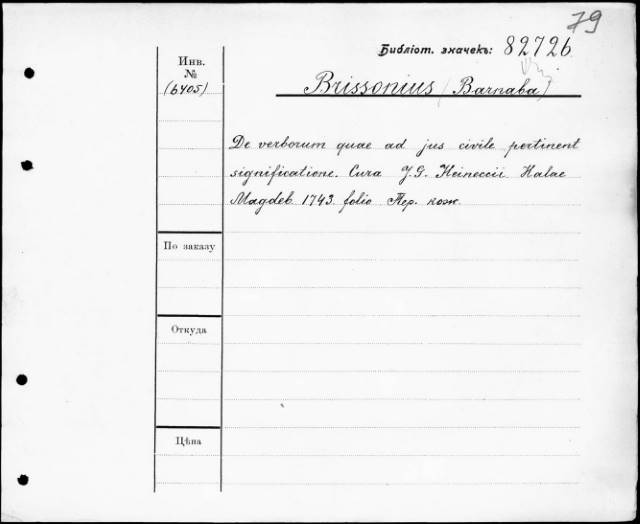 79
Библіот. значекъ: 82726
Инв.
№
(6405)
Brissonius (Barnaba)
De verborum quae ad jus civile pertinent
significatione. Cura J. G. Heineccii. Halae
Magdeb. 1743. folio Пер. кож.
По заказу
Откуда
Цѣна